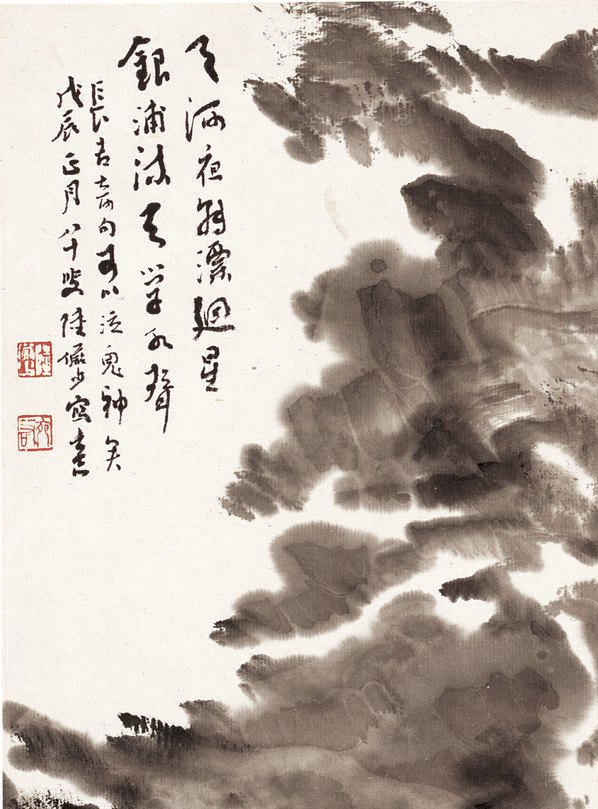 天河夜轉漂迴星
銀浦流云學水聲
長吉奇句可以泣鬼神矣
戊辰正月八十叟陸儼少寫意